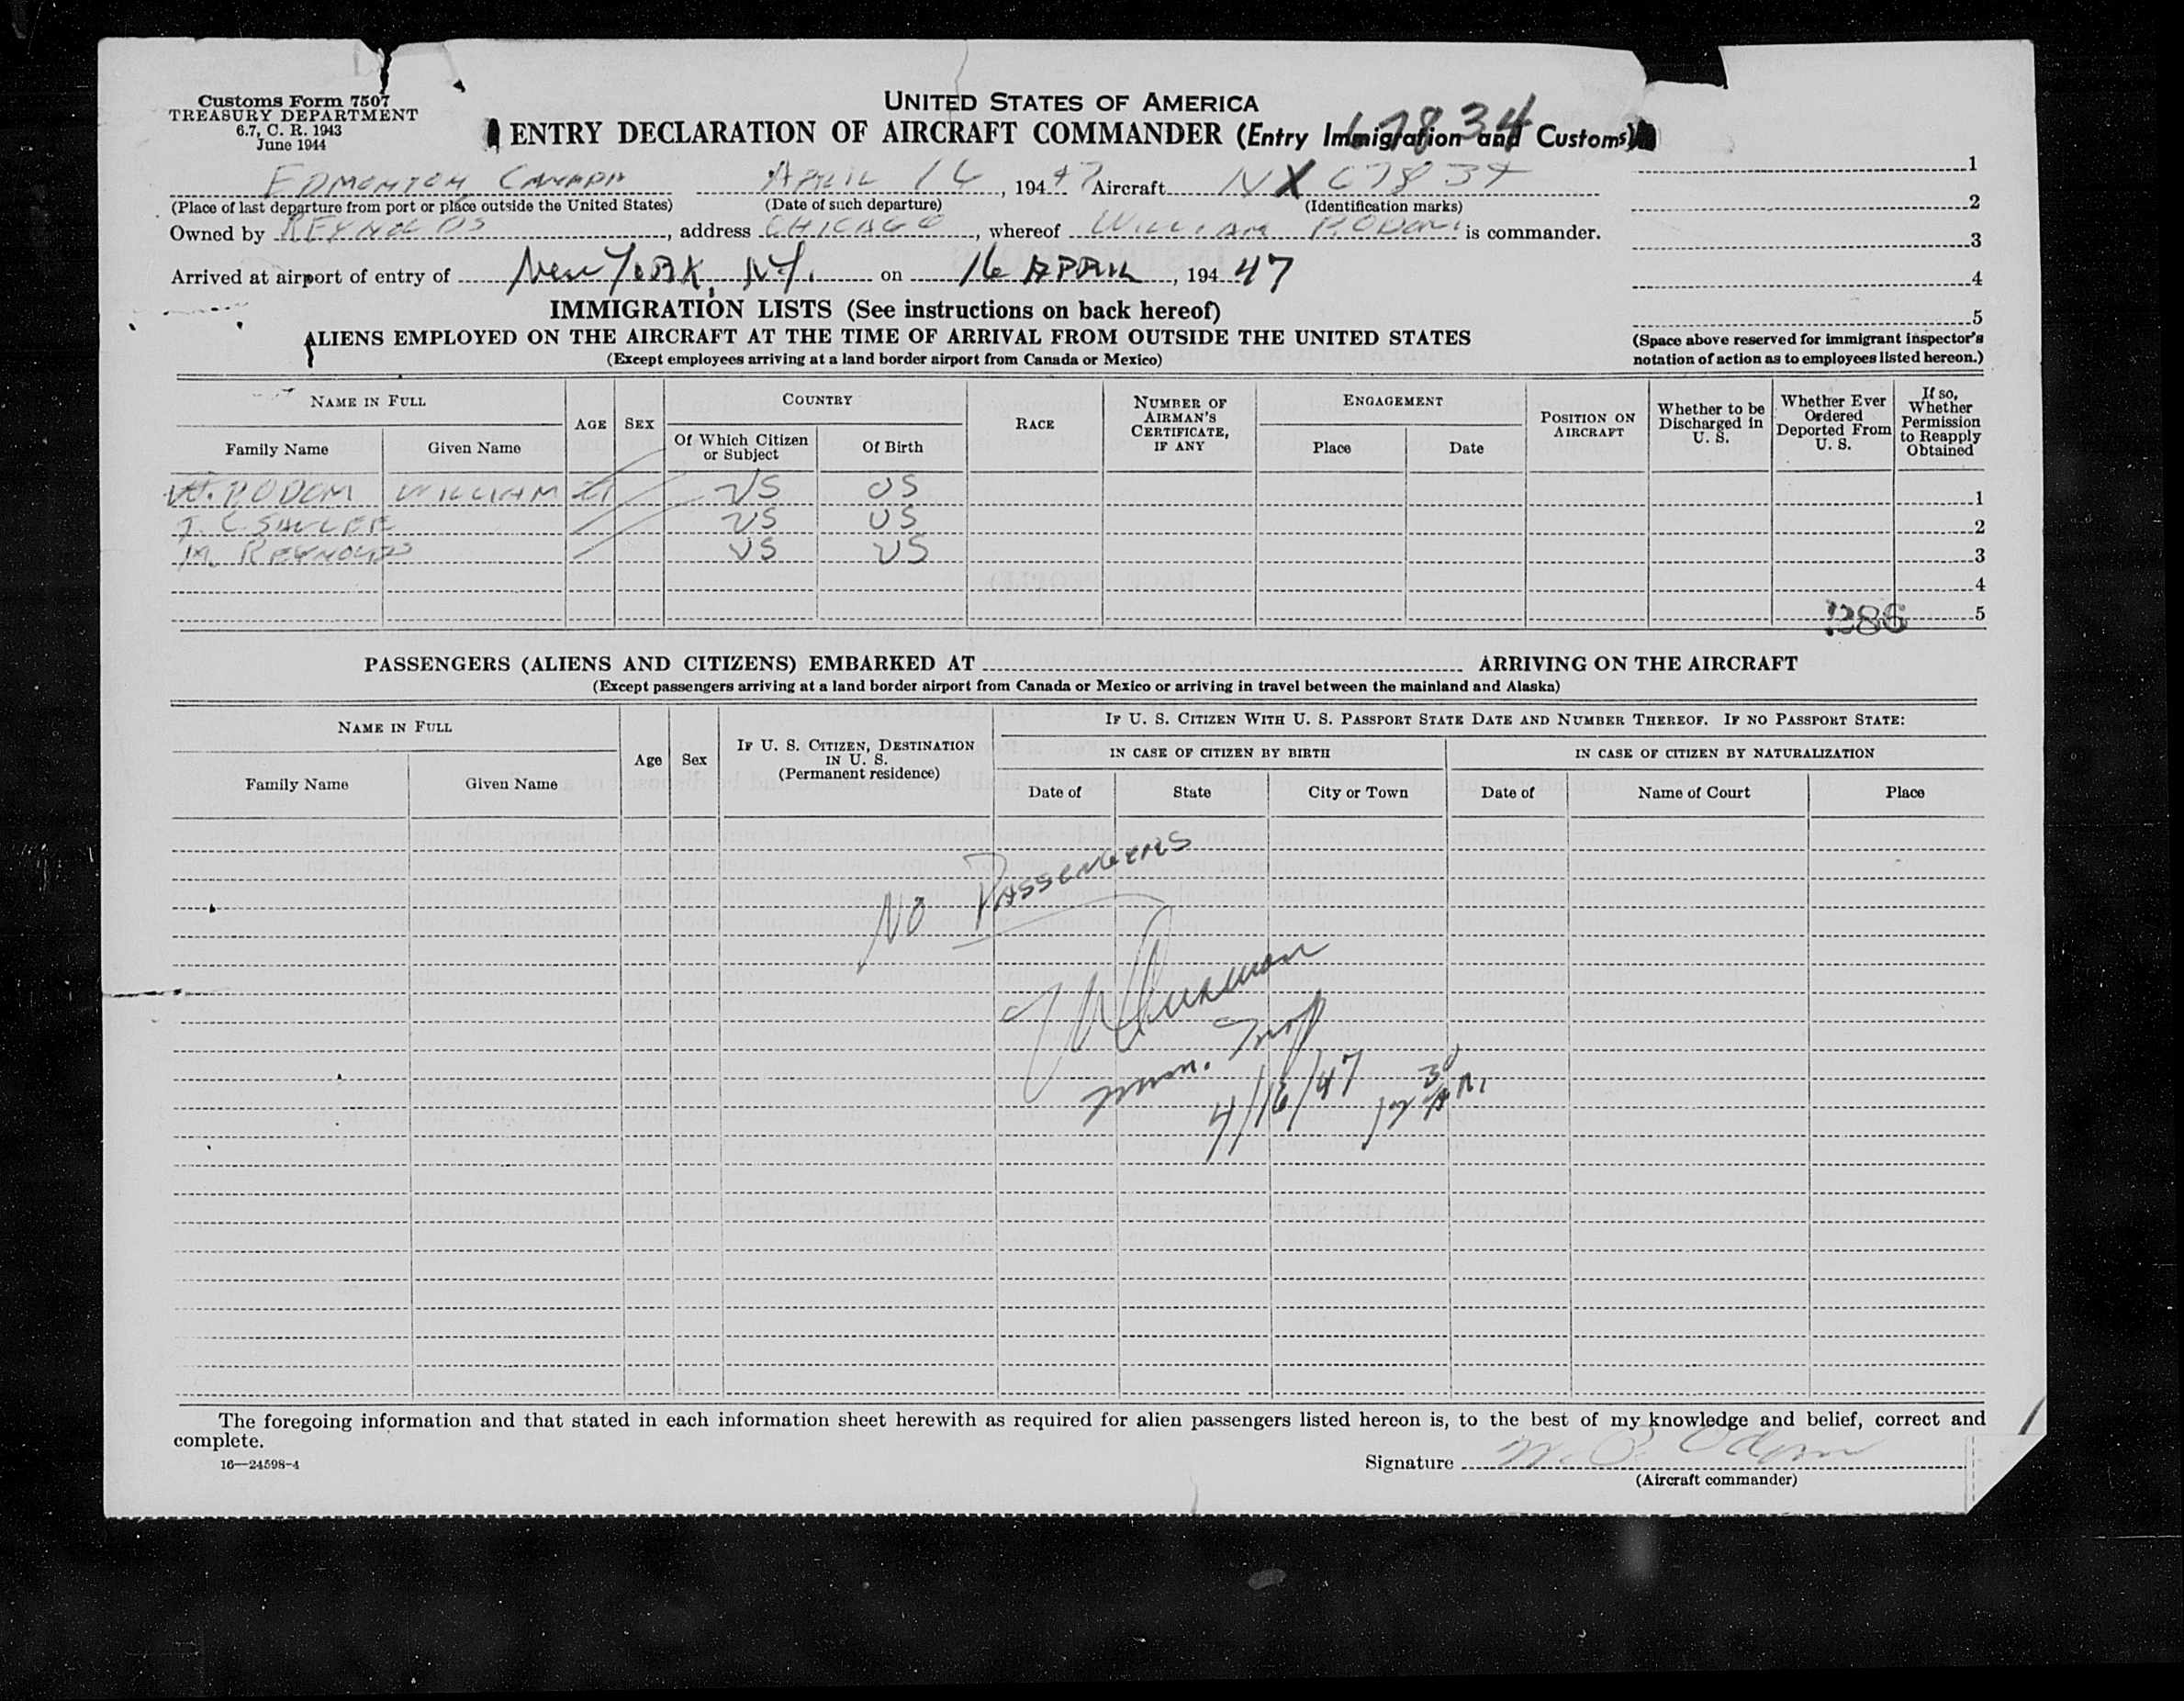 Customs Form 7507
TREASURY DEPARTMENT
6.7, C. R. 1943
June 1944
UNITED STATES OF AMERICA
ENTRY DECLARATION OF AIRCRAFT COMMANDER (Entry Immigration and Customs)
67834
EDMONTON CANADA APRIL 16, 1947 Aircraft NX 67834
(Place of last departure from port or place outside the United States) (Date of such departure) (Identification marks)
Owned by REYNOLDS, address CHICAGO, whereof WILLIAM P. ODOM is commander.
Arrived at airport of entry of New YORK, NY. on 16 APRIL, 194 47
1
2
3
4
5
(Space above reserved for immigrant inspector's
notation of action as to employees listed hereon.)
IMMIGRATION LISTS (See instructions on back hereof)
ALIENS EMPLOYED ON THE AIRCRAFT AT THE TIME OF ARRIVAL FROM OUTSIDE THE UNITED STATES
(Except employees arriving at a land border airport from Canada or Mexico)
NAME IN FULL
Family Name Given Name
AGE SEX
COUNTRY
Of Which Citizen or Subject
Of Birth
RACE
NUMBER OF AIRMAN'S CERTIFICATE, IF ANY
ENGAGEMENT
Place Date
POSITION ON AIRCRAFT
Whether to be Discharged in U. S.
Whether Ever Ordered Deported From U. S.
If so, Whether Permission to Reapply Obtained
W. P ODOM WILLIAM US US 1
T. C SALLEE US US 2
M. REYNOLDS US US 3
4
5
1286
PASSENGERS (ALIENS AND CITIZENS) EMBARKED AT ARRIVING ON THE AIRCRAFT
(Except passengers arriving at a land border airport from Canada or Mexico or arriving in travel between the mainland and Alaska)
NAME IN FULL
Family Name Given Name
Age Sex
IF U. S. CITIZEN, DESTINATION IN U. S.
(Permanent residence)
IF U. S. CITIZEN WITH U. S. PASSPORT STATE DATE AND NUMBER THEREOF. IF NO PASSPORT STATE:
IN CASE OF CITIZEN BY BIRTH IN CASE OF CITIZEN BY NATURALIZATION
Date of State City or Town Date of Name of Court Place
NO PASSENGERS
Imm. Insp
4/16/47
The foregoing information and that stated in each information sheet herewith as required for alien passengers listed hereon is, to the best of my knowledge and belief, correct and
complete.
16—24598-4
Signature W. P. Odom
(Aircraft commander)